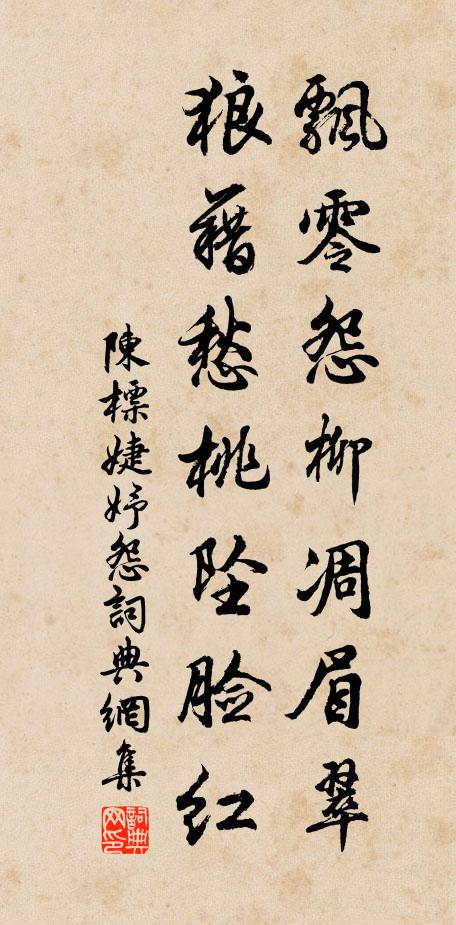 飄零怨柳凋眉翠
狼藉愁桃坠脸红
陳標婕妤怨詞典網集
詞典網印